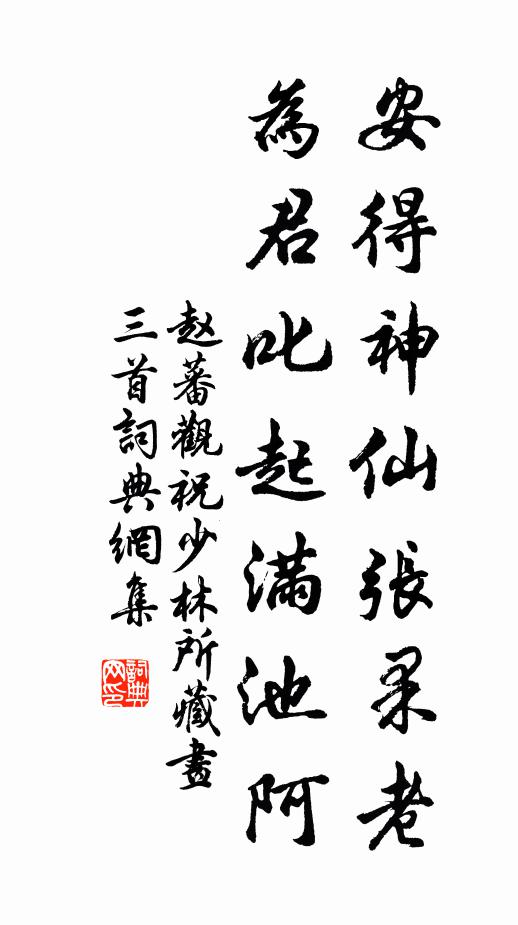 安得神仙張果老
為君叱起滿池阿
赵蕃觀祝少林所藏畫
三首詞典網集
詞典网印